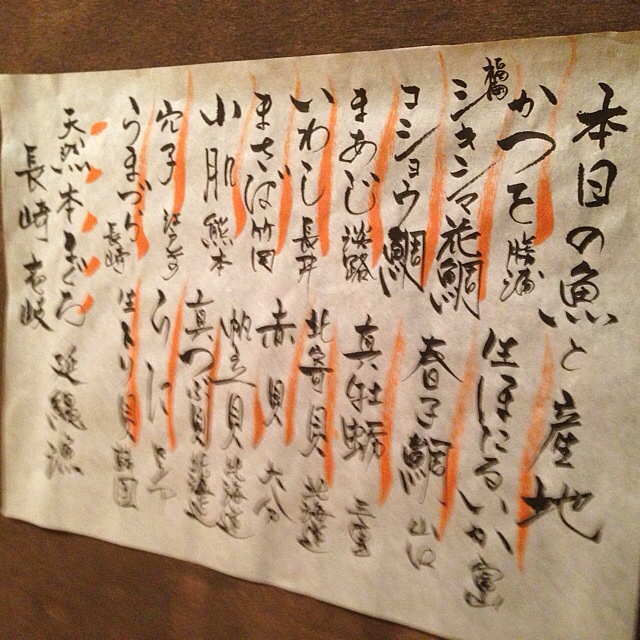 本日の魚と産地
かつを 勝浦
生ほたるいか 富山
シキシマ花鯛 福岡
コショウ鯛
春子鯛 山口
まあじ 淡路
真牡蛎 三重
いわし 長井
北寄貝 北海道
まさば 竹岡
赤貝 大分
小肌 熊本
帆立貝 北海道
真つぶ貝 北海道
穴子
うに
うまづら 長崎
生とり貝 韓国
天然本まぐろ 延縄漁
長崎 壱岐